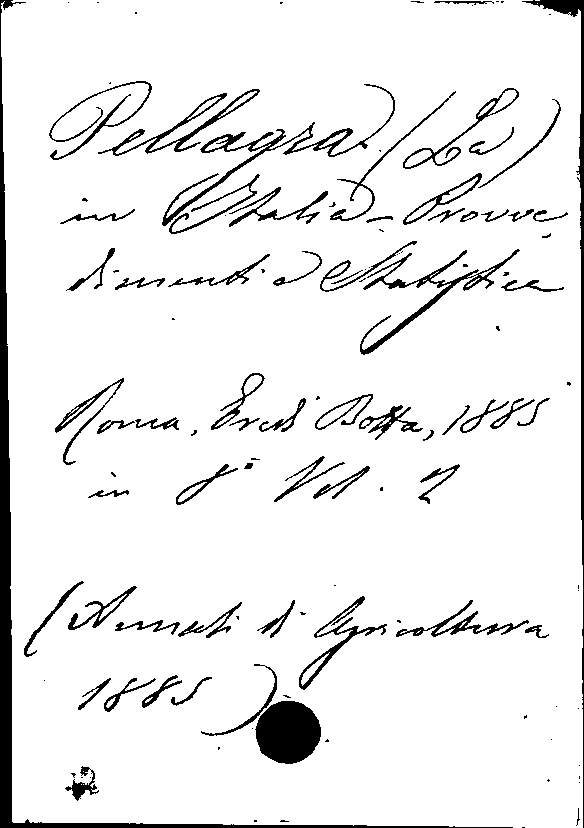 Pellagra (La)
in Italia - Provve
dimenti e Statistica
Roma, Eredi Botta, 1885
in 8° Vol. 2
(Annali di Agricoltura
1885)